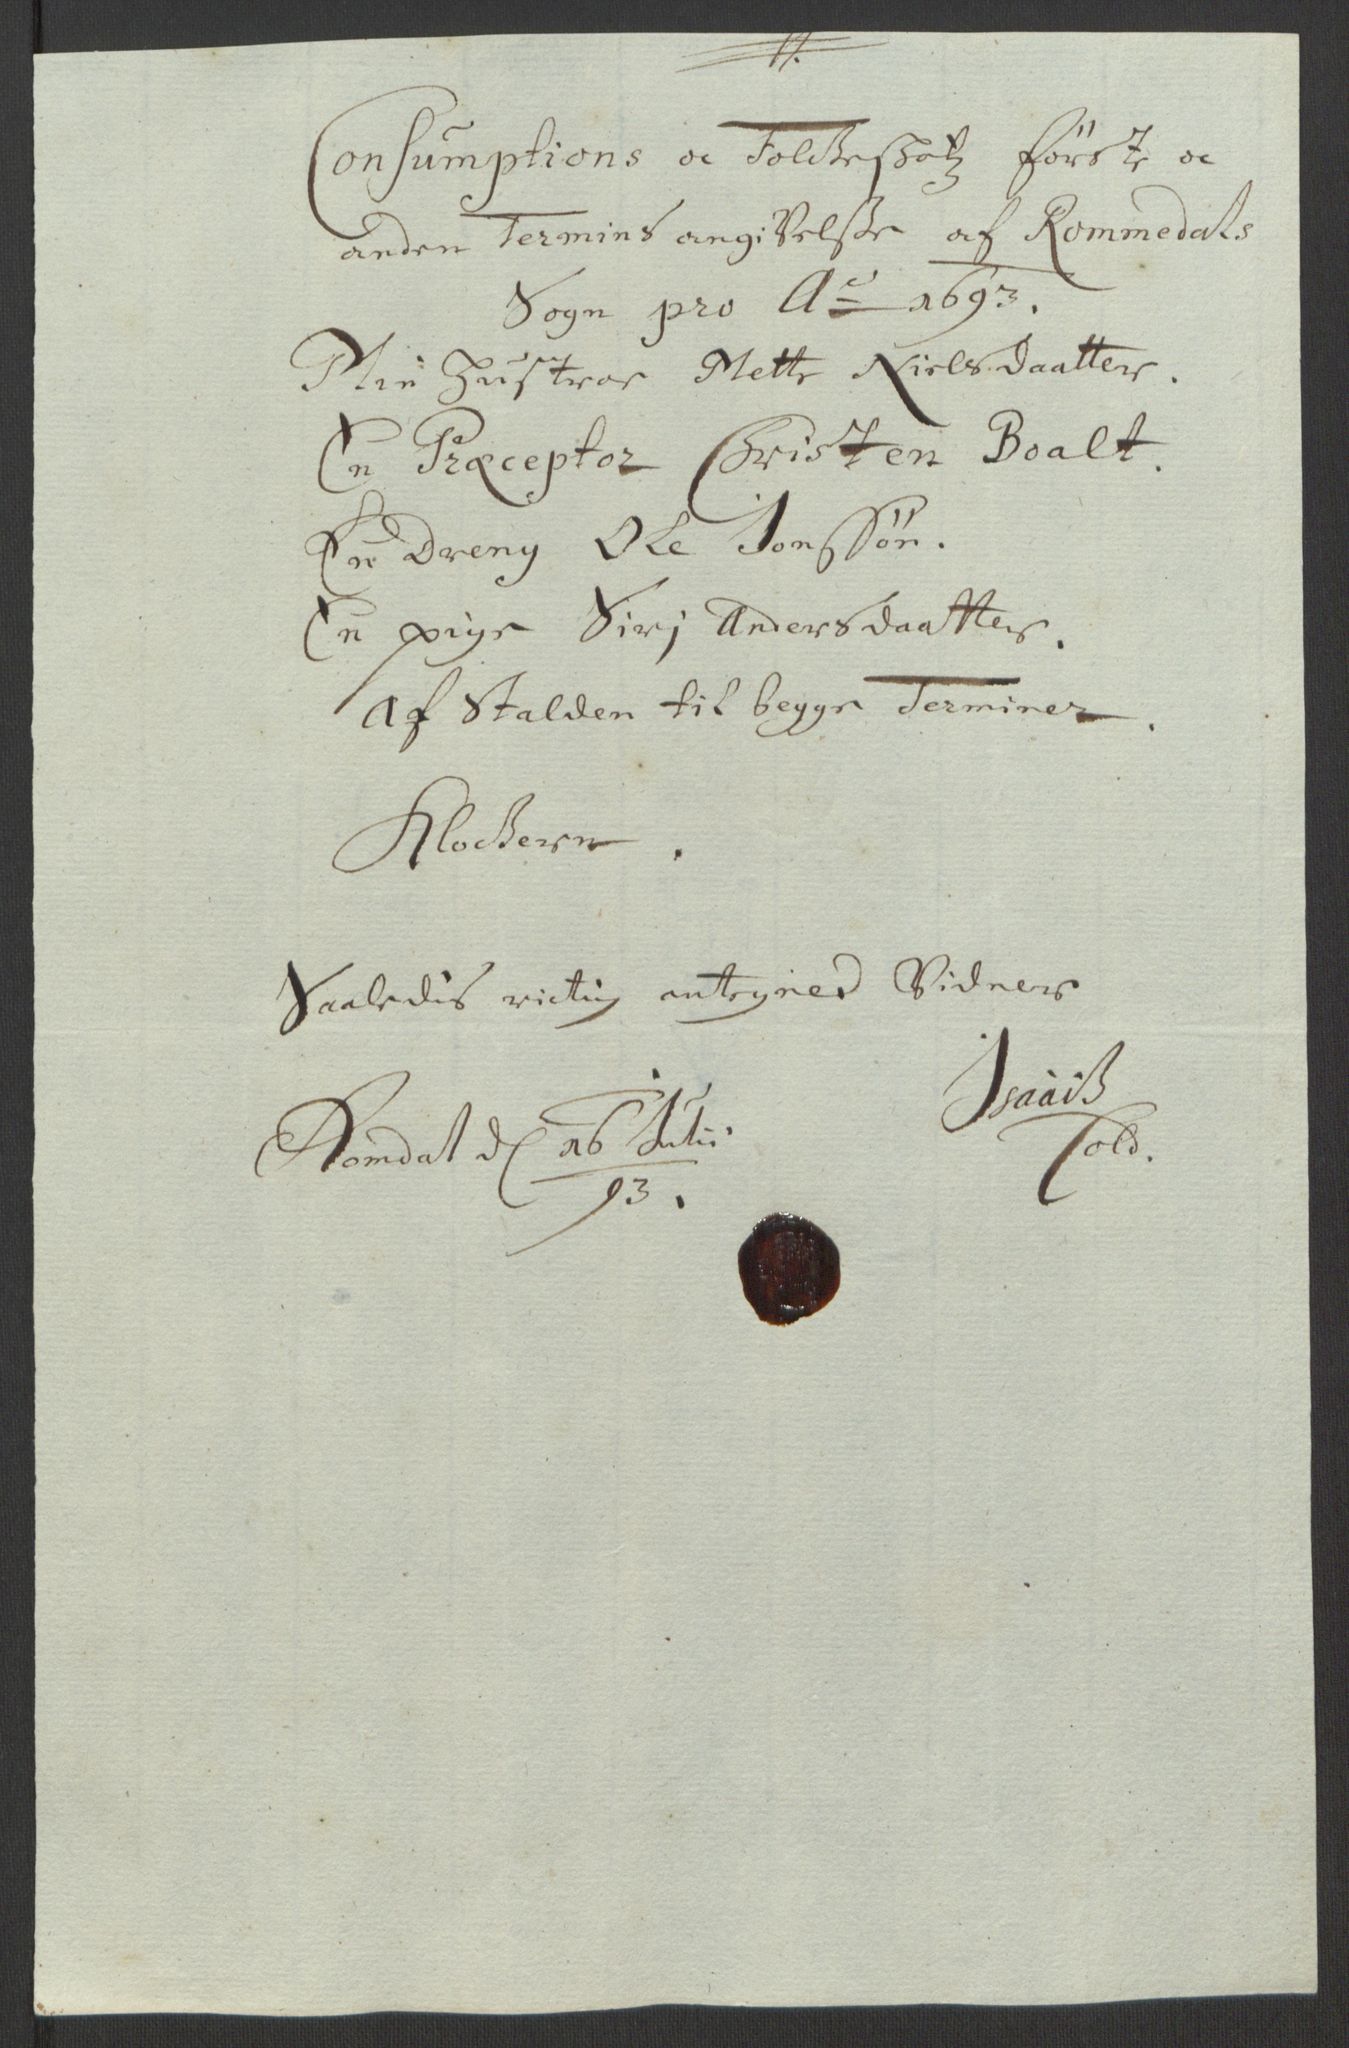 11.
Consumptions oc Folckeskatz förste oc
anden Termins angivelse af Rommedals
Sogn pro Ao 1693.
Min Hustroe Mette Nielsdaatter.
En Præceptor Christen Boalt.
En Dreng Ole Jonssön.
En pige Siri Andersdaatter.
Af Stalden til begge Terminer.
Klockeren.
Saaledis rictig antegned Vidner
Romdal d 16 Julii
93.
Isaach
Cold.